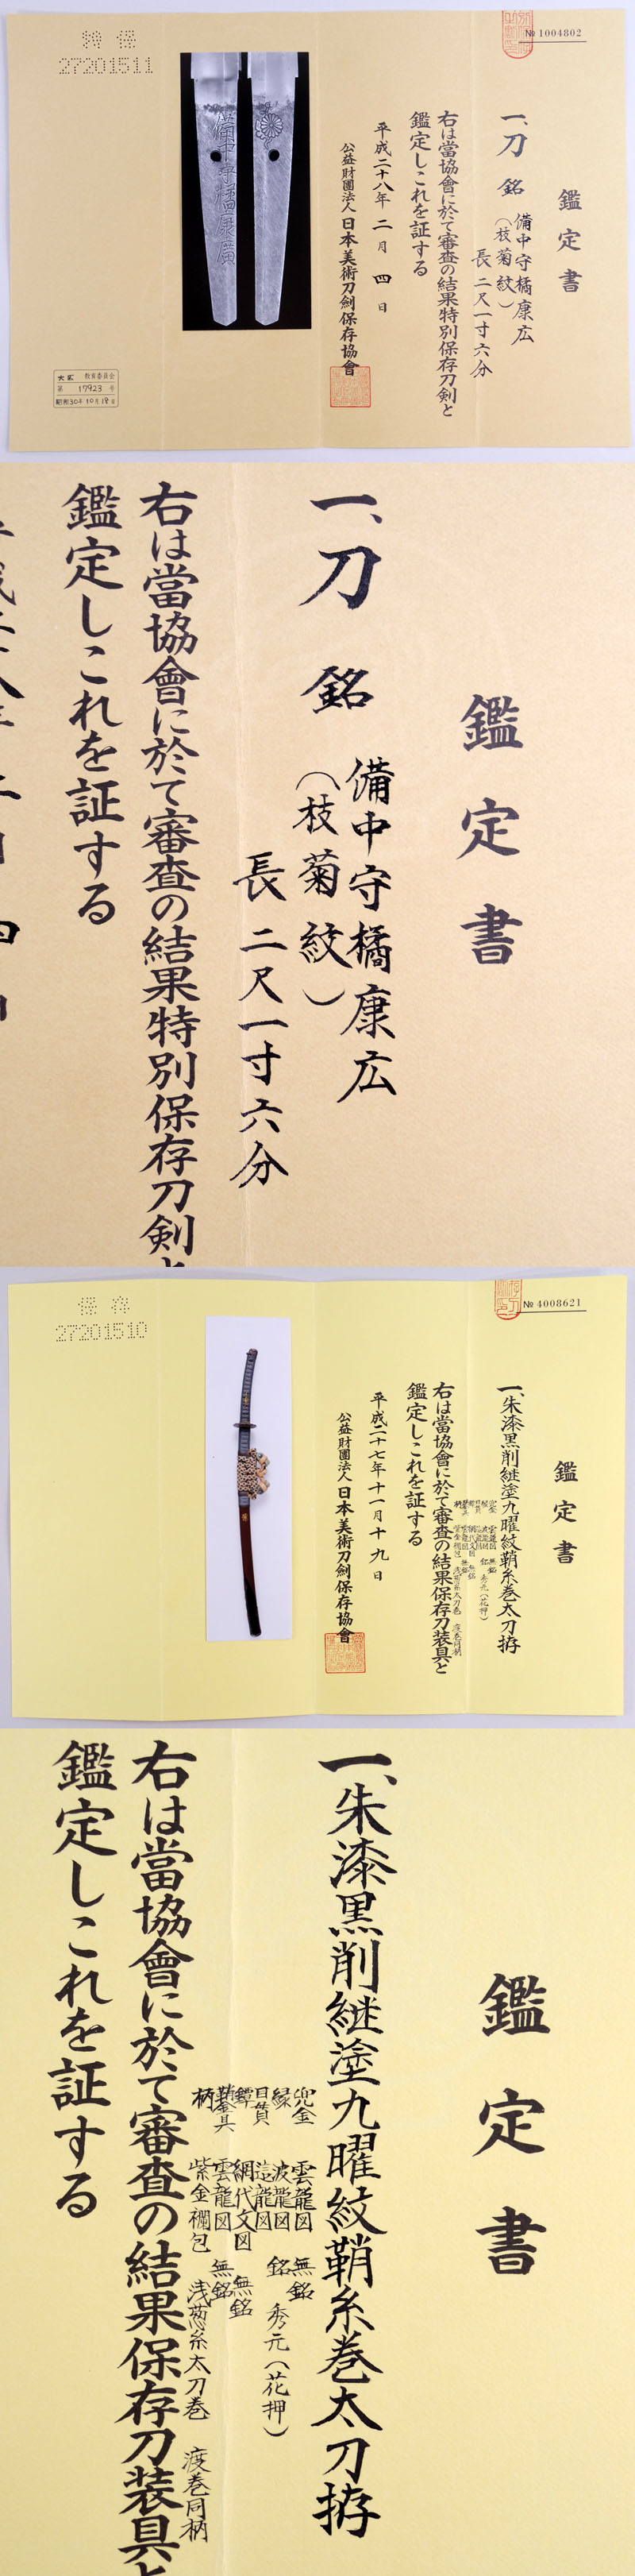 № 1004802
鑑定書
一、刀 銘 備中守橘康広
（枝菊紋）
長 二尺一寸六分
右は當協會に於て審査の結果特別保存刀剣と
鑑定しこれを証する
平成二十八年 二月 四日
公益財團法人 日本美術刀劍保存協會
備中守橘康廣
特保
27201511
教育委員会
第 17923 号
昭和30年10月18日
鑑定書
一、刀 銘 備中守橘康広
（枝菊紋）
長 二尺一寸六分
右は當協會に於て審査の結果特別保存刀剣と
鑑定しこれを証する
№ 4008621
鑑定書
一、朱漆黒削継塗九曜紋鞘糸巻太刀拵
兜金 雲龍図 無銘
縁 波龍図 銘 秀元（花押）
目貫 這龍図
鐔 網代文図 無銘
鞘金具 雲龍図 無銘
柄 紫金襴包 浅葱糸太刀巻 渡巻同柄
右は當協會に於て審査の結果保存刀装具と
鑑定しこれを証する
平成二十七年十一月十九日
公益財團法人 日本美術刀劍保存協會
保存
27201510
鑑定書
一、朱漆黒削継塗九曜紋鞘糸巻太刀拵
兜金 雲龍図 無銘
縁 波龍図 銘 秀元（花押）
目貫 這龍図
鐔 網代文図 無銘
鞘金具 雲龍図 無銘
柄 紫金襴包 浅葱糸太刀巻 渡巻同柄
右は當協會に於て審査の結果保存刀装具と
鑑定しこれを証する